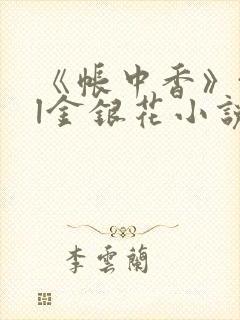 《帳中香》
|金銀花小說
李雲蘭